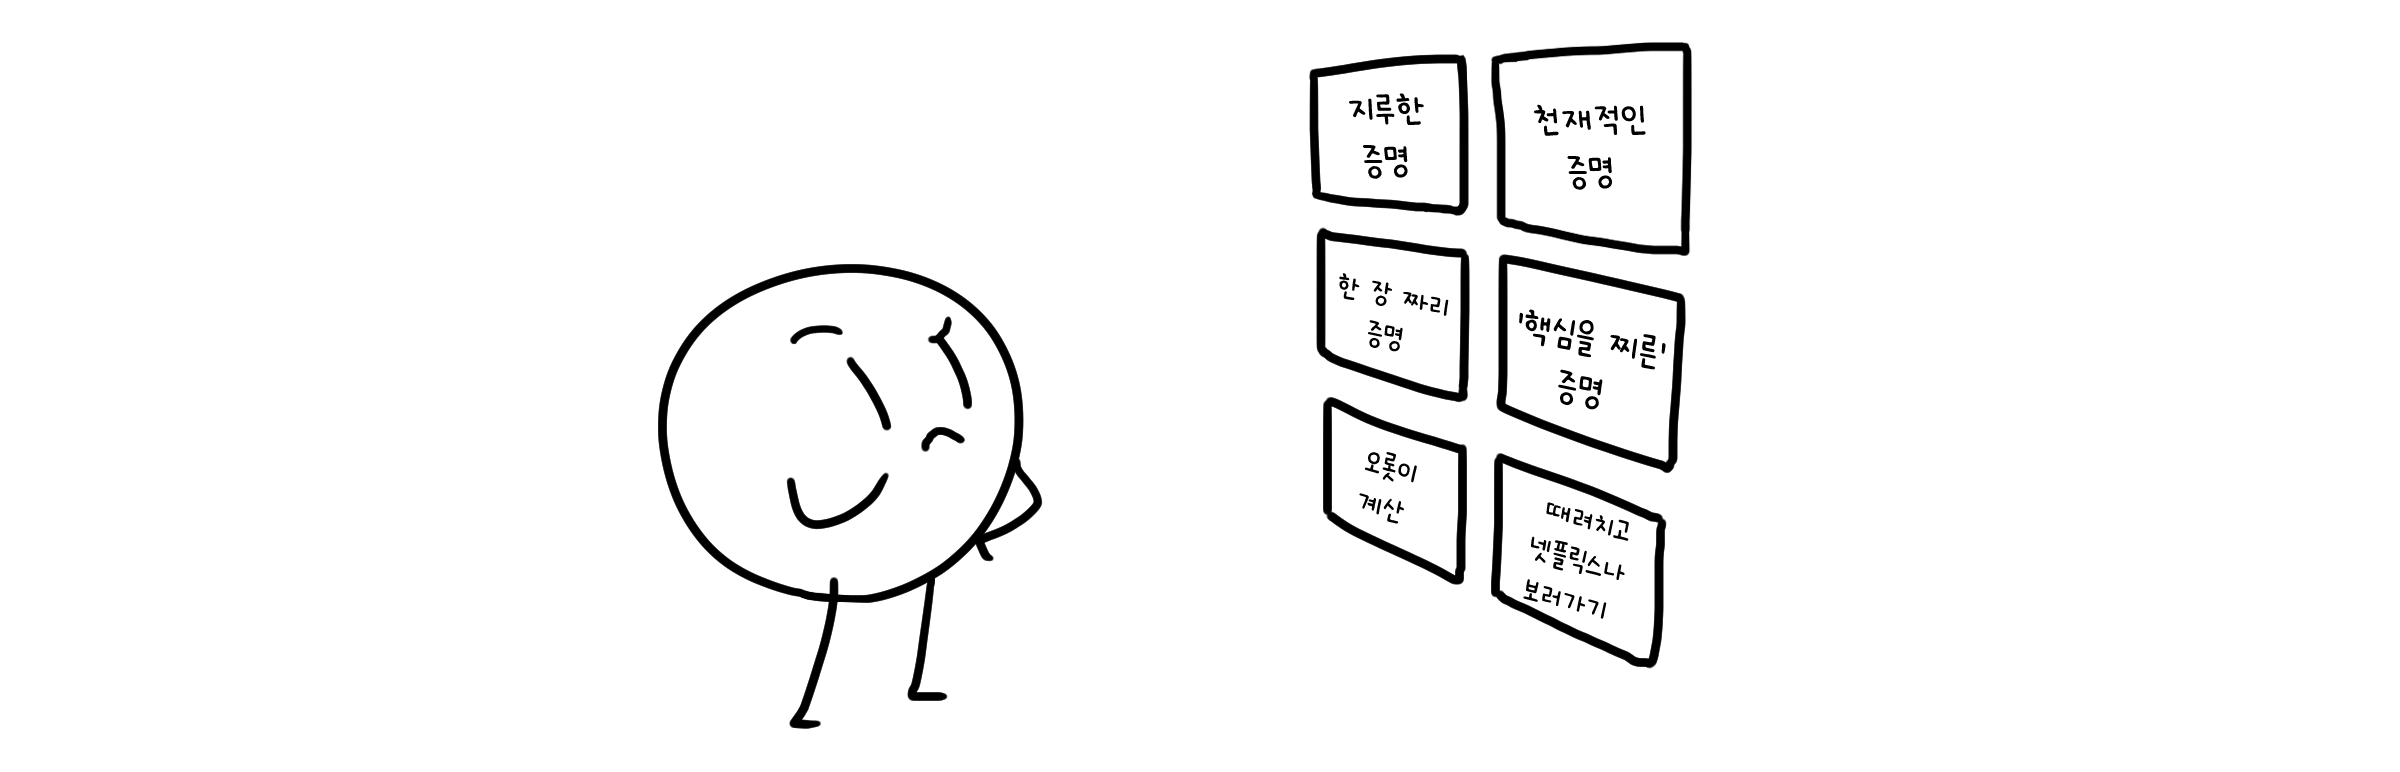 지루한
증명
천재적인
증명
한 장 짜리
증명
'핵심을 찌른'
증명
오롯이
계산
때려치고
넷플릭스나
보러가기